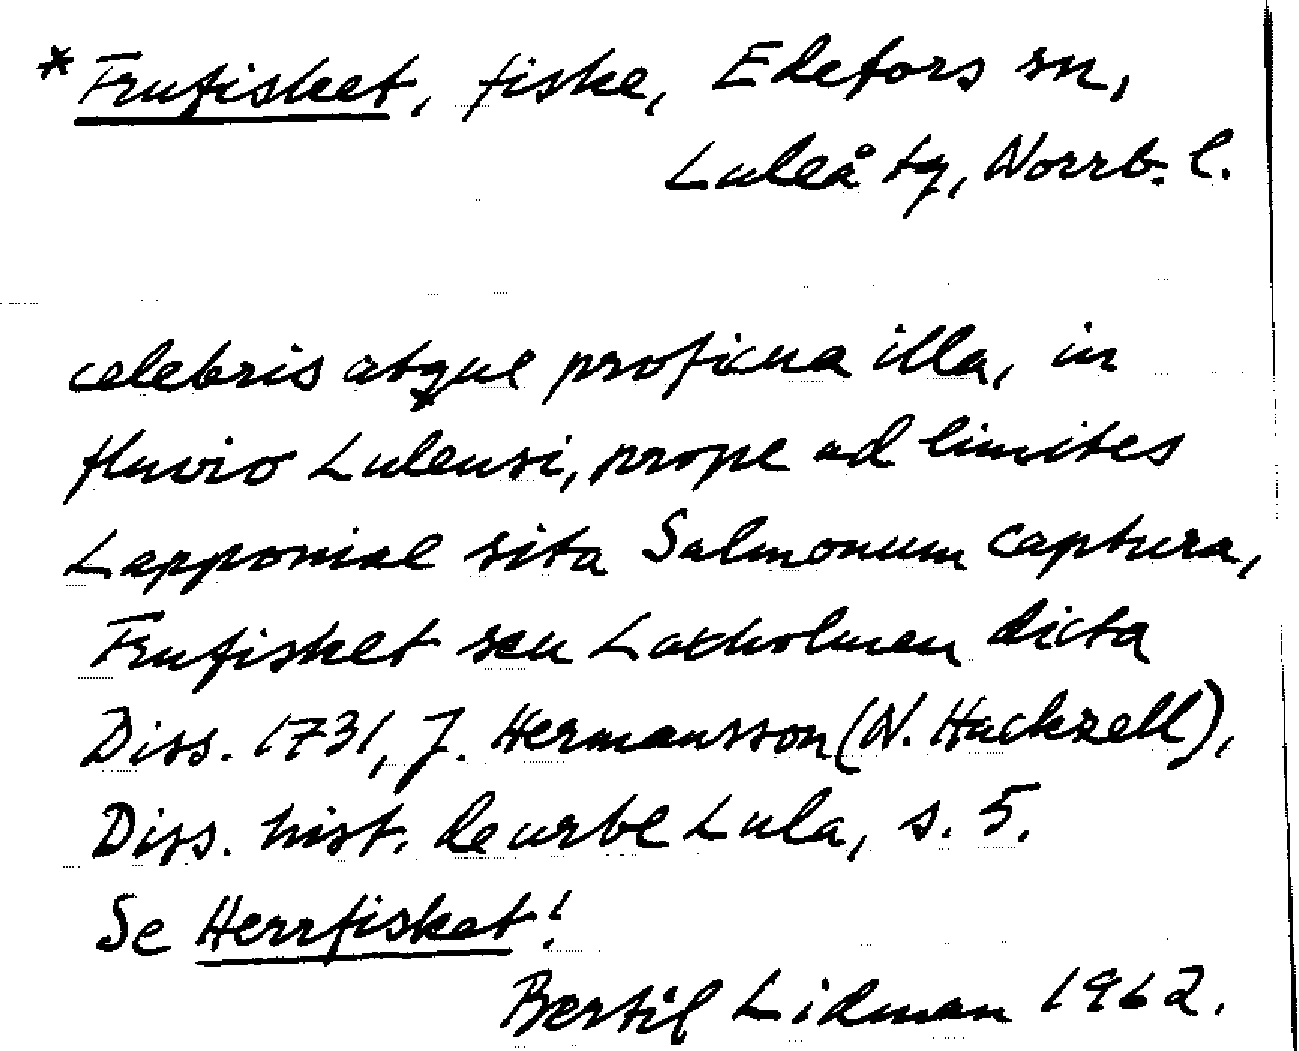 * Frufisket, fiske, Edefors sn,
Luleå tg, Norrb. l.
celebris atque proficua illa, in
fluvio Lulensi, prope ad limites
Lapponiae sita Salmonum captura,
Frufisket seu Laxholmen dicta
Diss. 1731, J. Hermansson (N. Hackzell),
Diss. hist. de urbe Lula, s. 5.
Se Herrfisket!
Bertil Lidman 1962.